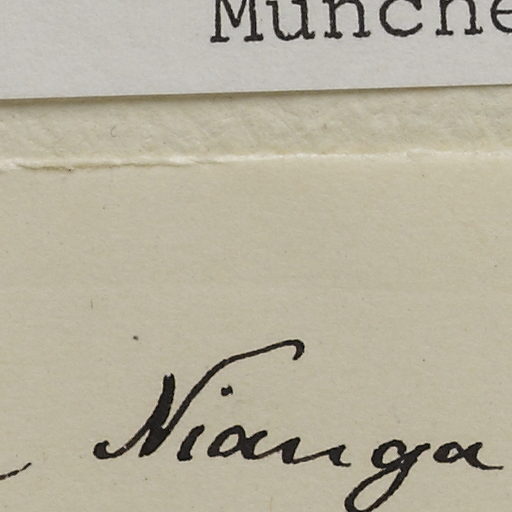 Münche
Nianga